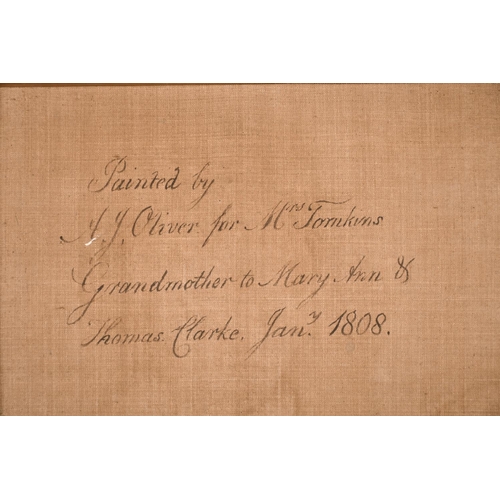 Painted by
A.J. Oliver for Mrs Tomkins
Grandmother to Mary Ann &
Thomas Clarke, Jany. 1808.